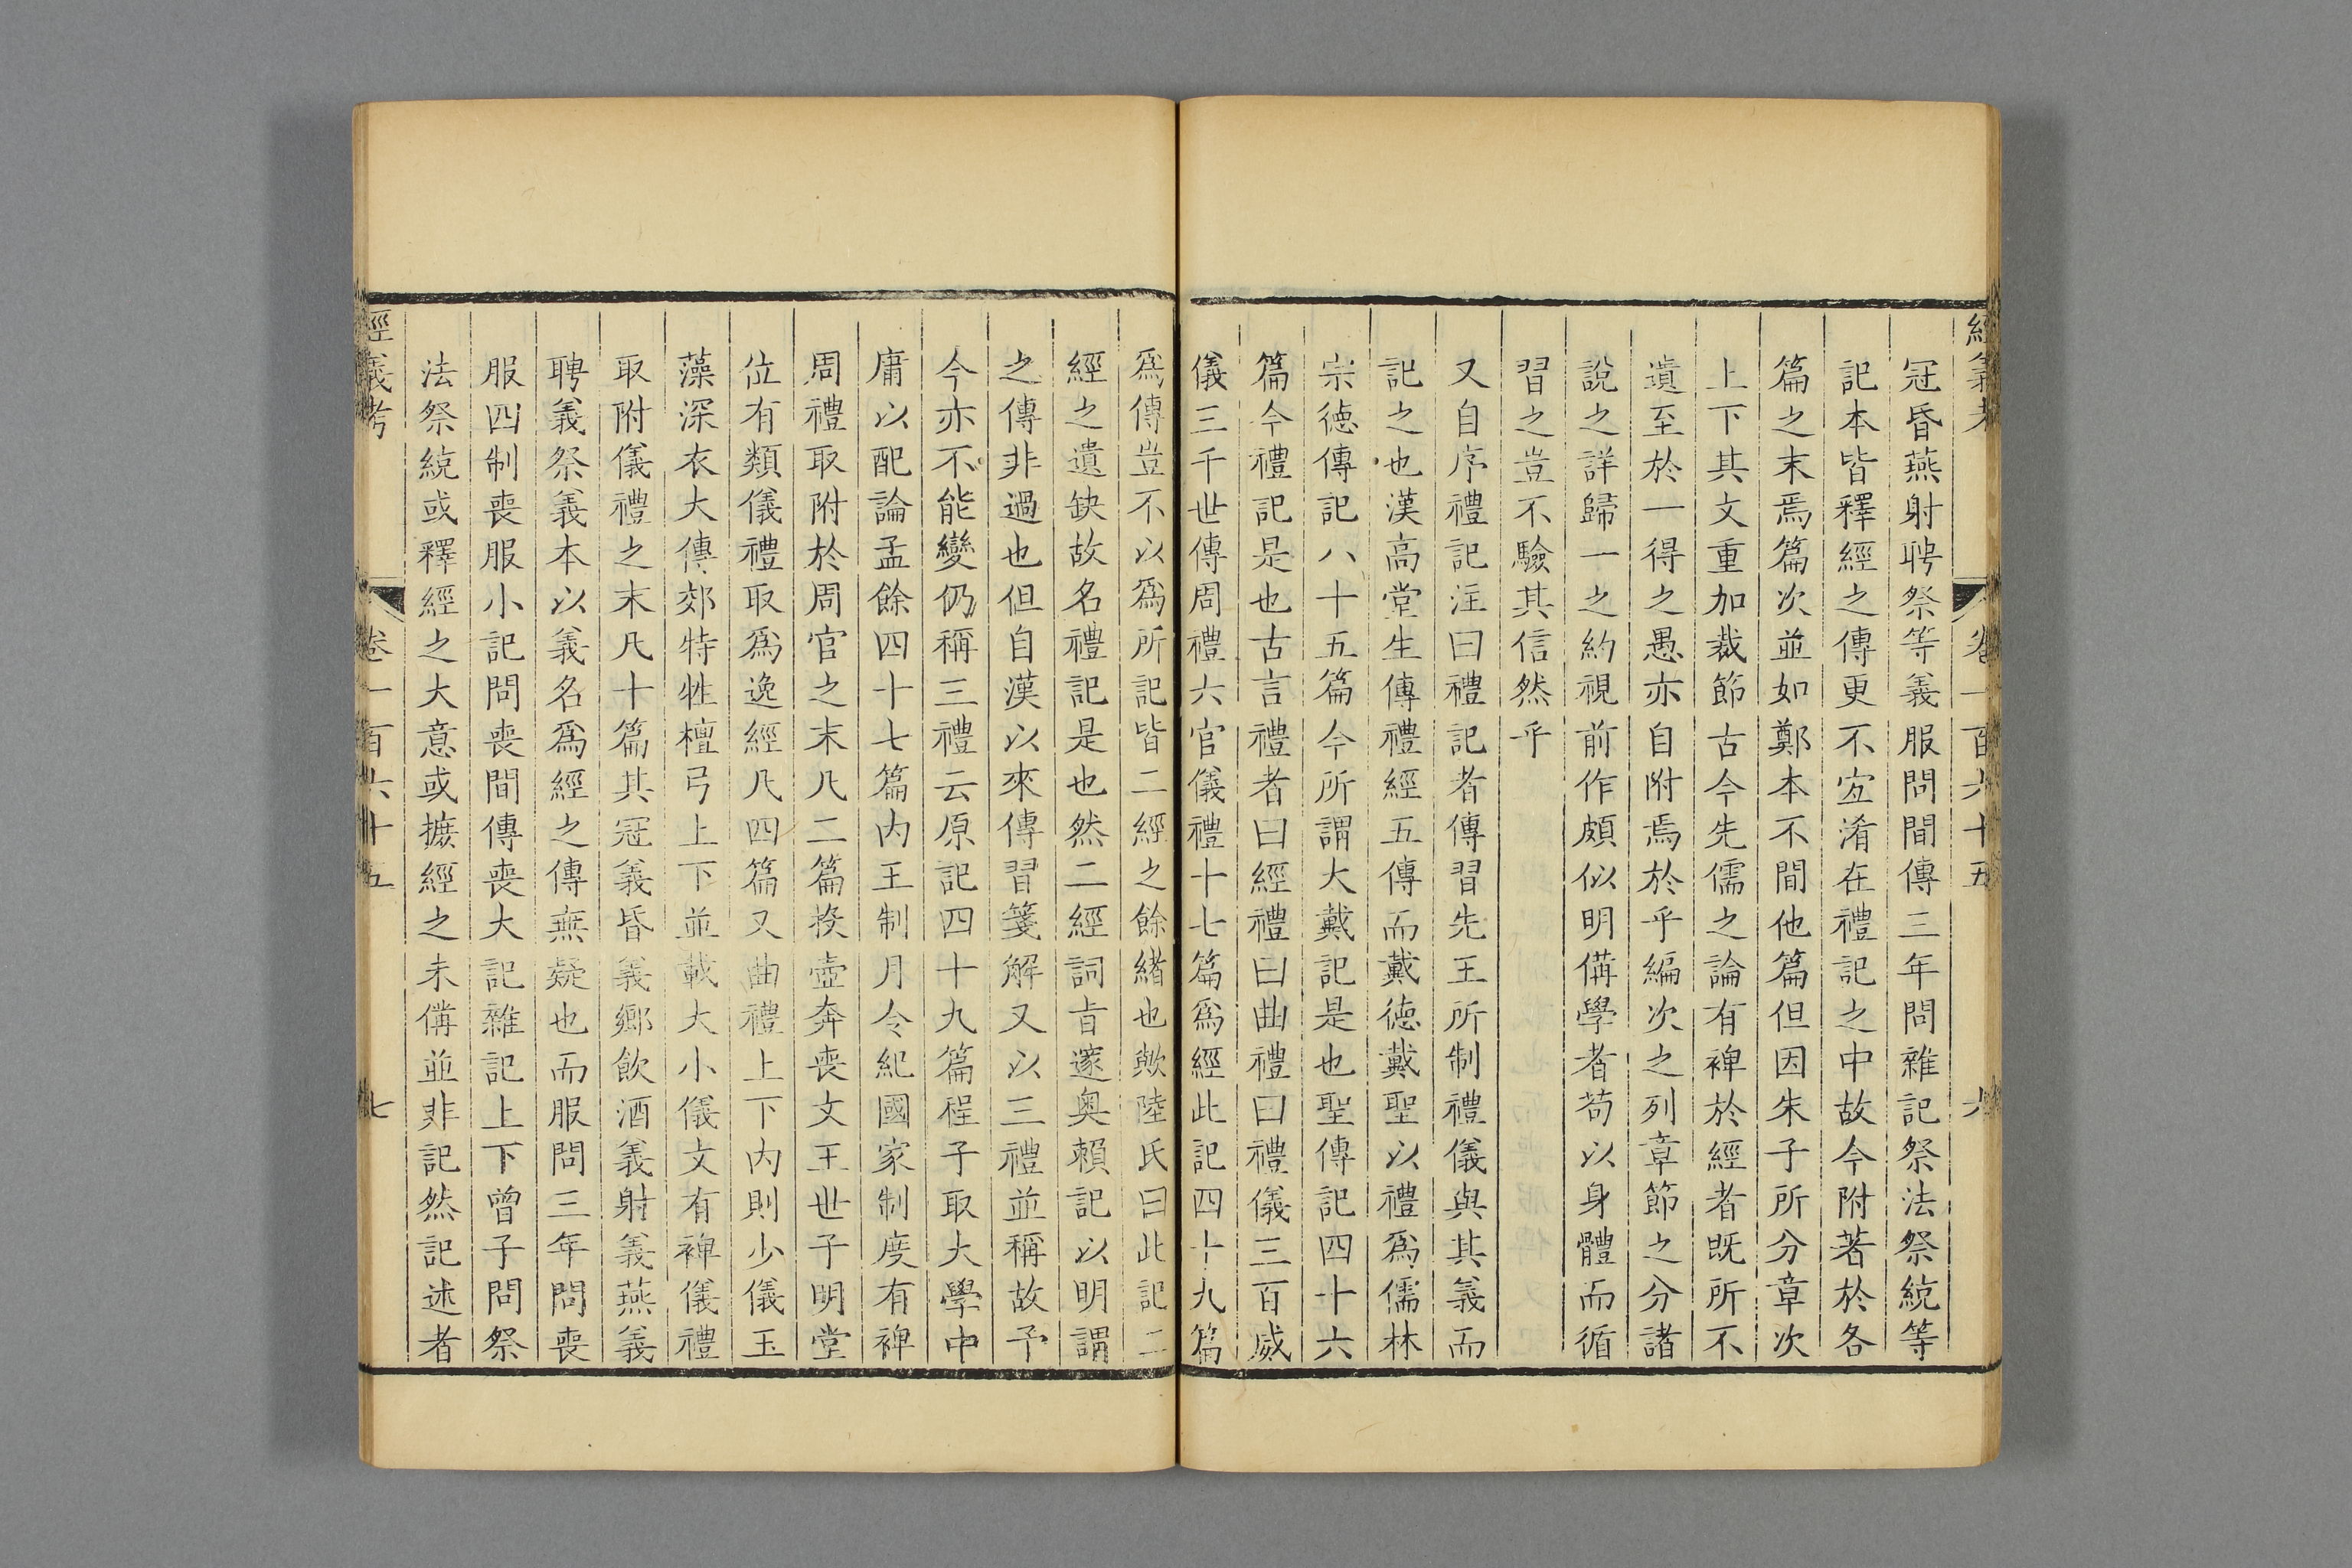 經義考 卷一百六十五 六
冠昏燕射聘祭等義服問間傳三年問雜記祭法祭統等
記本皆釋經之傳更不宜淆在禮記之中故今附著於各
篇之末焉篇次並如鄭本不間他篇但因朱子所分章次
上下其文重加裁節古今先儒之論有裨於經者既所不
遺至於一得之愚亦自附焉於乎編次之列章節之分諸
說之詳歸一之約視前作頗似明備學者苟以身體而循
習之豈不驗其信然乎
又自序禮記注曰禮記者傳習先王所制禮儀與其義而
記之也漢高堂生傳禮經五傳而戴德戴聖以禮爲儒林
宗德傳記八十五篇今所謂大戴記是也聖傳記四十六
篇今禮記是也古言禮者曰經禮曰曲禮曰禮儀三百威
儀三千世傳周禮六官儀禮十七篇爲經此記四十九篇
爲傳豈不以爲所記皆二經之餘緒也歟陸氏曰此記二
經之遺缺故名禮記是也然二經詞旨邃奧賴記以明謂
之傳非過也但自漢以來傳習箋解又以三禮並稱故予
今亦不能變仍稱三禮云原記四十九篇程子取大學中
庸以配論孟餘四十七篇内王制月令紀國家制度有裨
周禮取附於周官之末凡二篇投壺奔喪文王世子明堂
位有類儀禮取爲逸經凡四篇又曲禮上下内則少儀玉
藻深衣大傳郊特牲檀弓上下並載大小儀文有裨儀禮
取附儀禮之末凡十篇其冠義昏義鄉飲酒義射義燕義
聘義祭義本以義名爲經之傳無疑也而服問三年問喪
服四制喪服小記問喪間傳喪大記雜記上下曾子問祭
法祭統或釋經之大意或摭經之未備並非記然記述者
經義考 卷一百六十五 七